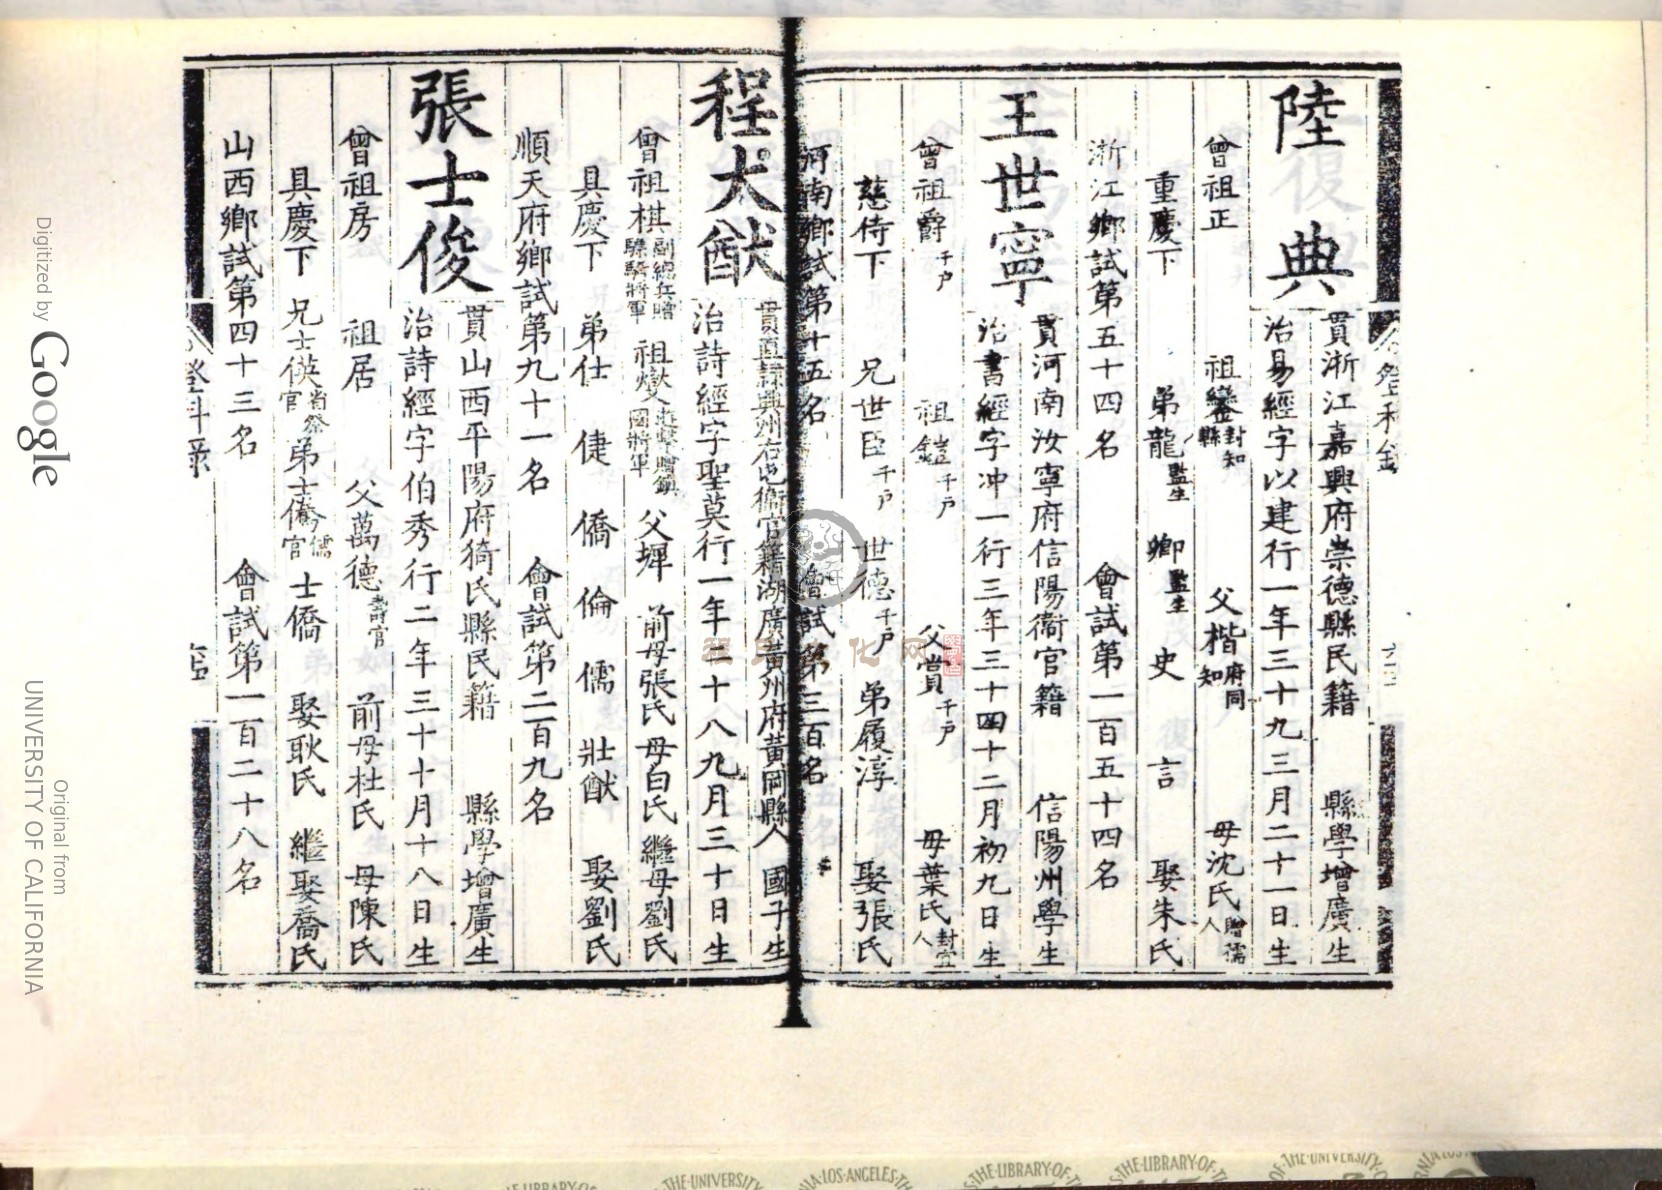 陸典
貫浙江嘉興府崇德縣民籍 縣學增廣生
治易經字以建行一年三十九三月二十一日生
曾祖正 祖鑾封知縣 父楷府同知 母沈氏贈孺人
重慶下 弟龍監生 卿監生 史 言 娶朱氏
浙江鄉試第五十四名 會試第一百五十四名
王世寧
貫河南汝寧府信陽衞官籍 信陽州學生
治書經字冲一行三年三十四十二月初九日生
曾祖爵千户 祖鎧千户 父賞千户 母葉氏封宜人
慈侍下 兄世臣千户 世德千户 弟履淳 娶張氏
河南鄉試第十五名 會試第三百名
程大猷
貫直隸興州右屯衞官籍湖廣黃州府黃岡縣人 國子生
治詩經字聖莫行一年二十八九月三十日生
曾祖棋副總兵贈驃騎將軍 祖爕遊擊贈鎮國將軍 父墀 前母張氏 母白氏 繼母劉氏
具慶下 弟仕 倢 僑 倫 儒 壯猷 娶劉氏
順天府鄉試第九十一名 會試第二百九名
張士俊
貫山西平陽府猗氏縣民籍 縣學增廣生
治詩經字伯秀行二年三十十月十八日生
曾祖房 祖居 父萬德壽官 前母杜氏 母陳氏
具慶下 兄士偀省祭官 弟士儀 士僑 娶耿氏 繼娶喬氏
山西鄉試第四十三名 會試第一百二十八名
登科錄
Digitized by Google
Original from
UNIVERSITY OF CALIFORNIA
THE·UNIVERSITY
LOS·ANGELES
THE·LIBRARY·OF
THE·LIBRARY·OF
OF·THE·UNIVERSITY